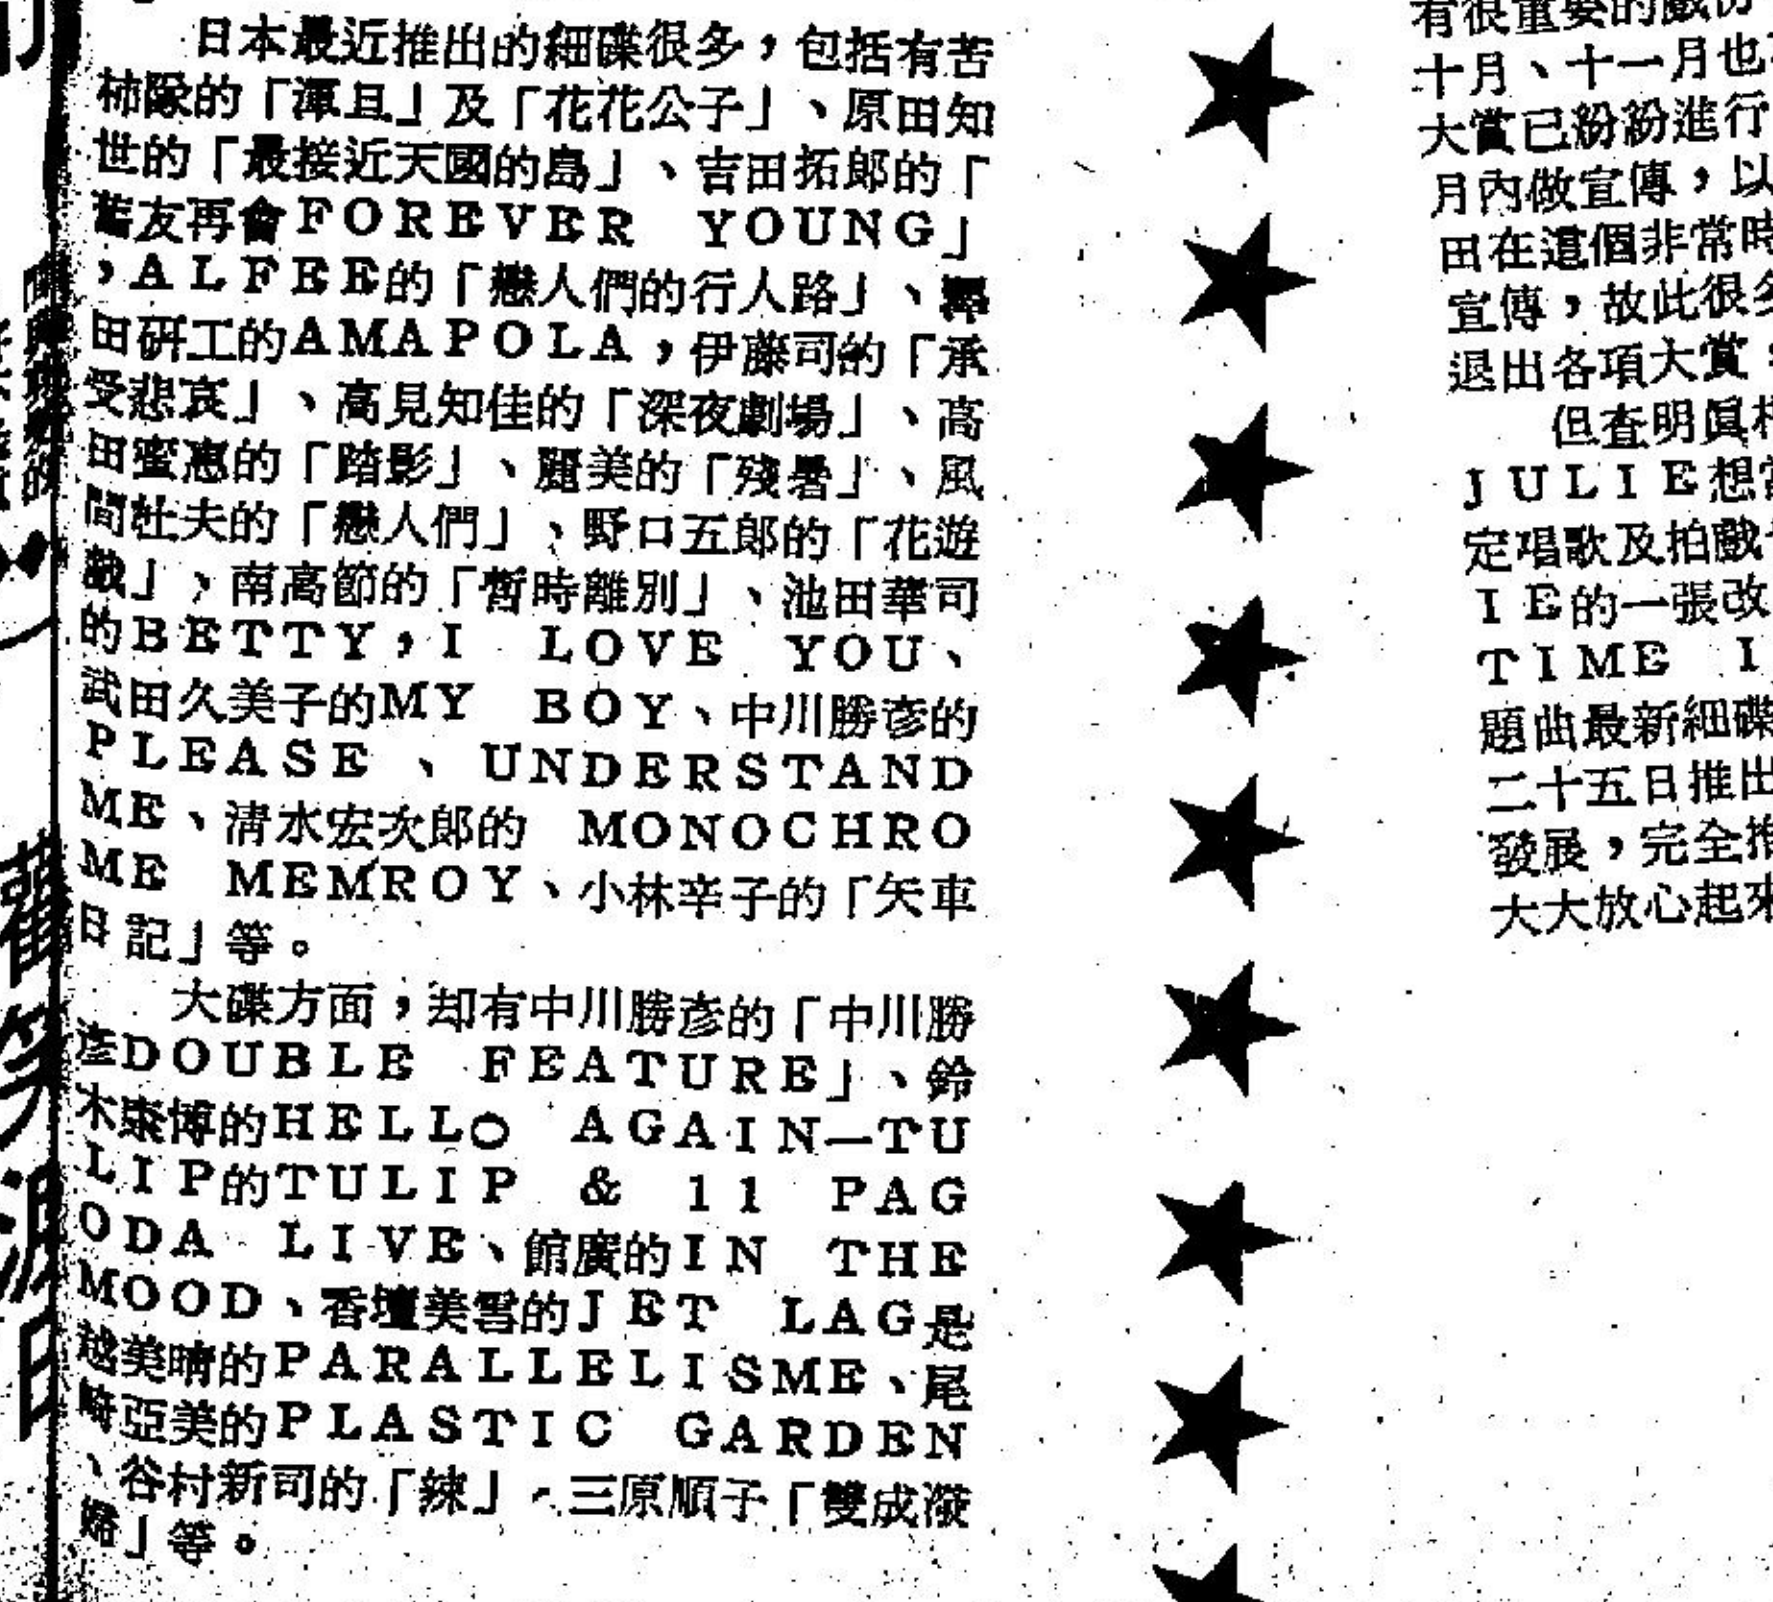 日本最近推出的細碟很多，包括有苦
柿隊的「渾且」及「花花公子」、原田知
世的「最接近天國的島」、吉田拓郎的「
舊友再會FOREVER YOUNG」
，ALFEE的「戀人們的行人路」、
田研工的AMAPOLA，伊藤司的「承
受悲哀」、高見知佳的「深夜劇場」、高
田蜜惠的「踏影」、麗美的「殘暑」、風
間杜夫的「戀人們」、野口五郎的「花遊
戲」，南高節的「暫時離別」、池田華司
的BETTY，I LOVE YOU、
武田久美子的MY BOY、中川勝彥的
PLEASE、UNDERSTAND
ME、清水宏次郎的 MONOCHRO
ME MEMROY、小林辛子的「矢車
日記」等。
大碟方面，却有中川勝彥的「中川勝
彥DOUBLE FEATURE」、鈴
木康博的HELLO AGAIN—TU
LIP的TULIP & 11 PAG
ODA LIVE、館廣的IN THE
MOOD、香壇美雪的JET LAG是
越美晴的PARALLELISME、尾
崎亞美的PLASTIC GARDEN
、谷村新司的「棟」、三原順子「雙成
」等。
有很重要的戲份
十月、十一月也
大賞已紛紛進行
月內做宣傳，以
田在這個非常時
宣傳，故此很多
退出各項大賞，
但查明眞相
JULIE想當
定唱歌及拍戲
IE的一張改
TIME I
題曲最新細碟
二十五日推出
發展，完全推
大大放心起來